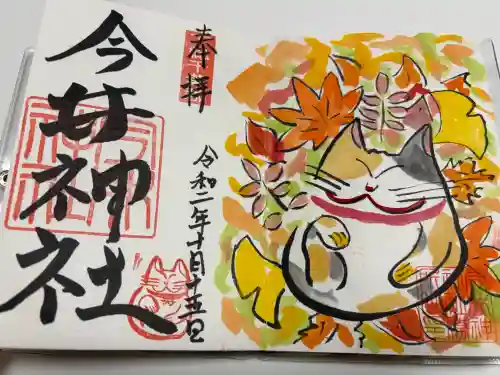 奉拝
今戸神社
令和二年十月十五日